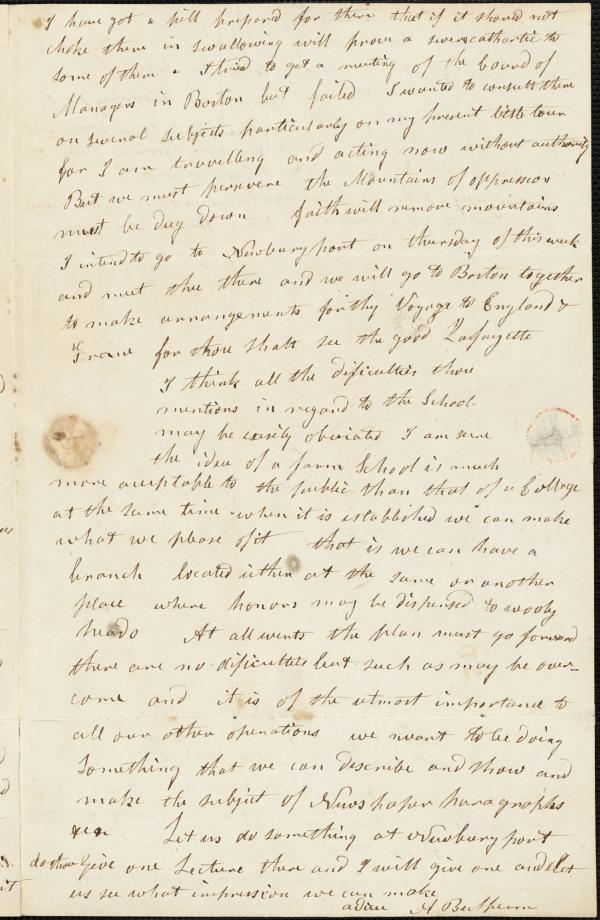 I have got a pill prepared for them that if it should not
choke them in swallowing will prove a severe cathartic to
some of them. I tried to get a meeting of the board of
Managers in Boston but failed I wanted to consult them
on several subjects particularly on my present little tour
for I am travelling and acting now without authority
But we must persevere the Mountains of oppression
must be dug down faith will remove mountains
I intend to go to Newburyport on thursday of this week
and meet thee there and we will go to Boston together
to make arrangements for thy Voyage to England &
France for thou shalt see the good Lafayette
I think all the dificulties thou
mentions in regard to the School
may be easily obviated I am sure
the idea of a farm School is much
more acceptable to the public than that of a College
at the same time when it is established we can make
what we please of it that is we can have a
branch located either at the same or another
place where honors may be dispensed to wooly
heads At all events the plan must go forward
there are no dificulties but such as may be over-
come and it is of the utmost importance to
all our other operations we want to be doing
Something that we can describe and show and
make the subject of News paper paragraphs
Let us do something at Newburyport
do thou Give one Lecture there and I will give one and let
us see what impression we can make
adieu A Buffum